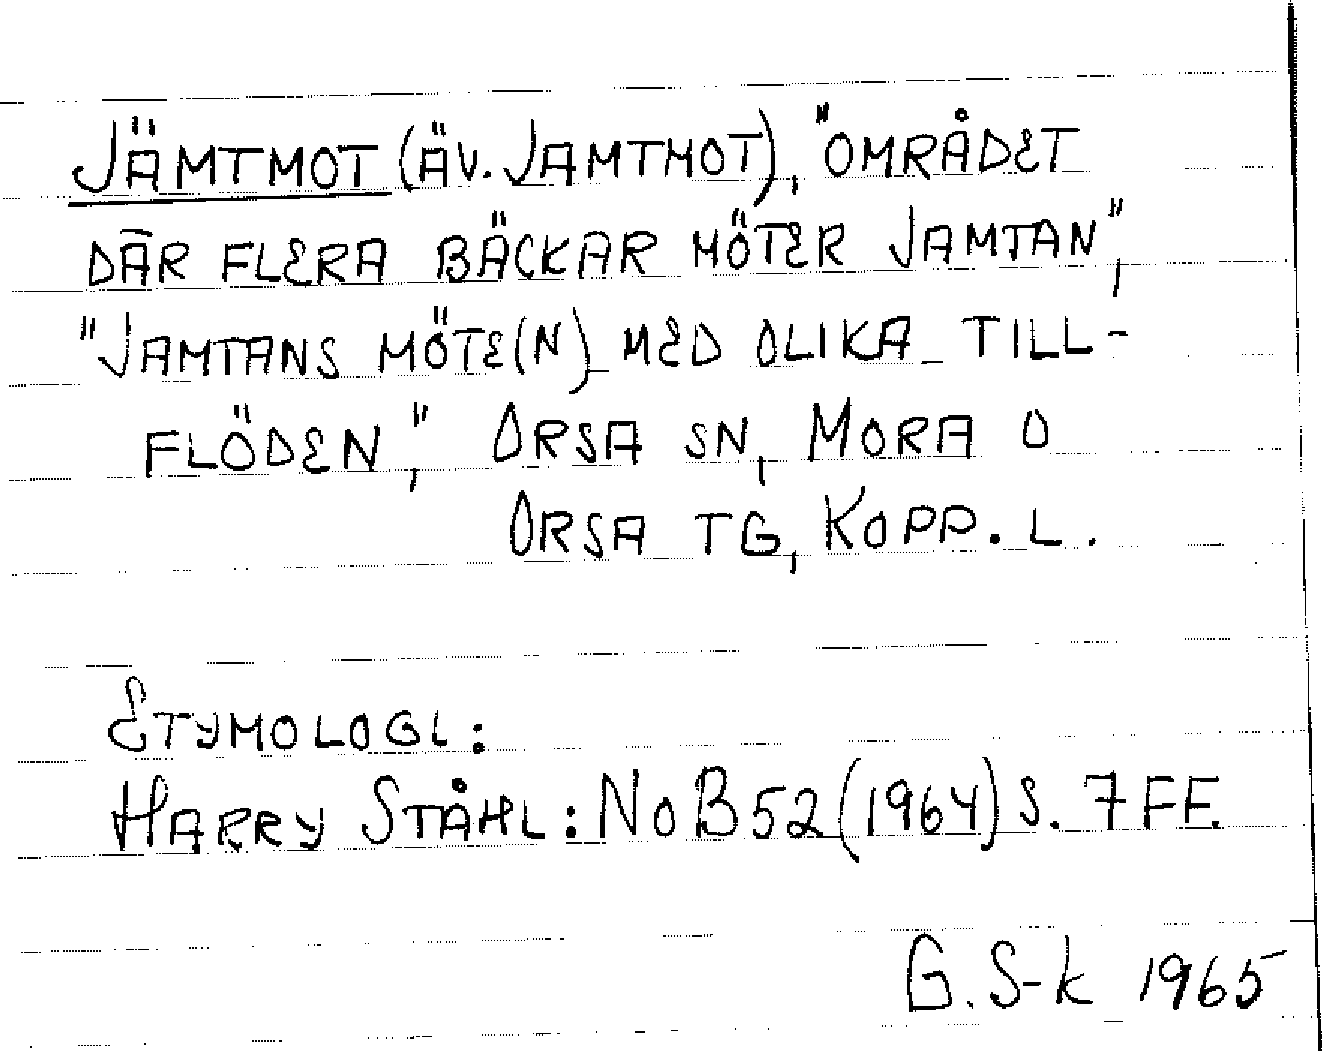 JÄMTMOT (ÄV. JAMTMOT), "OMRÅDET
DÄR FLERA BÄCKAR MÖTER JAMTAN",
"JAMTANS MÖTE(N) MED OLIKA TILL-
FLÖDEN", ORSA SN, MORA O
ORSA TG, KOPP. L.
ETYMOLOGI:
HARRY STÅHL: NoB 52 (1964) S. 7 FF.
G. S-k 1965